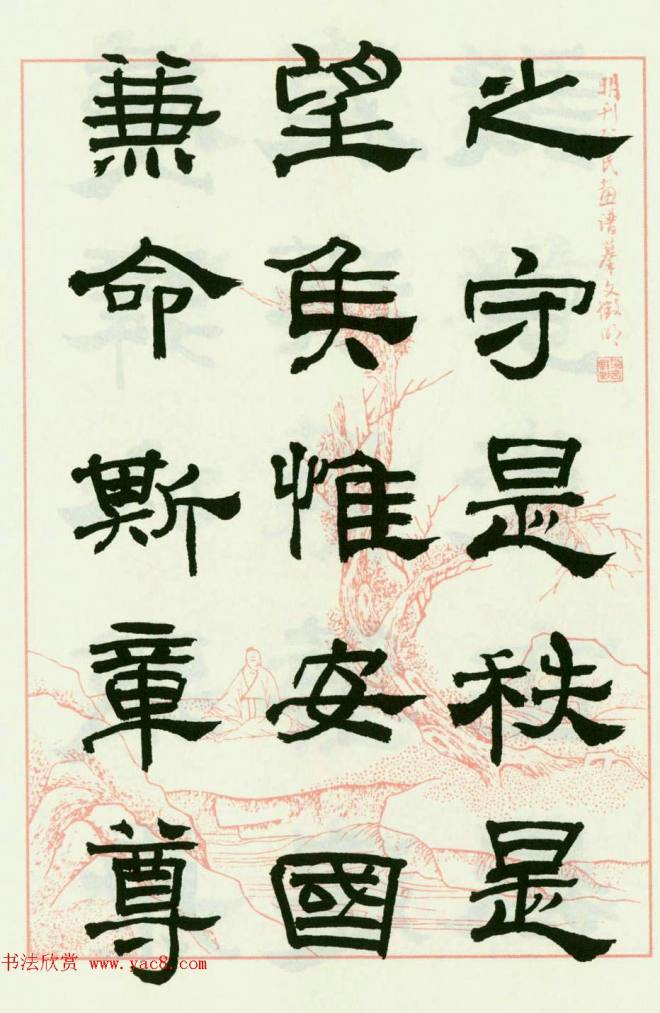 之守是秩是
望矦惟安國
兼命斯章尊
明刊 氏画谱摹文徵明
书法欣赏 www.yac8.com